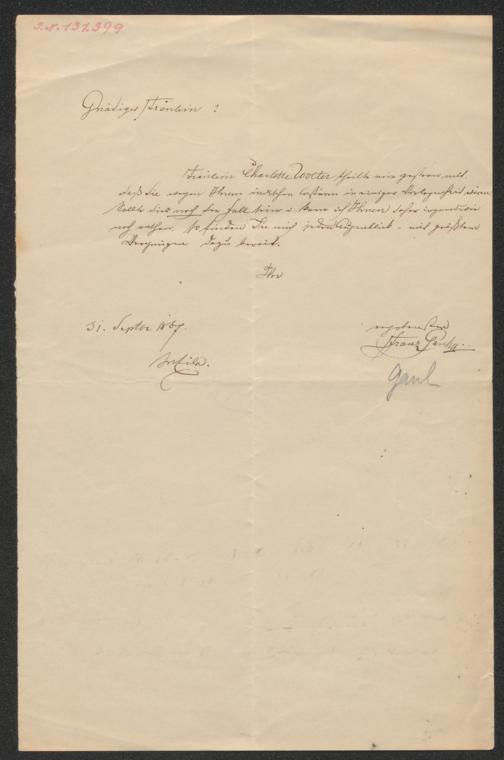 I.N. 131.399
Gnädiges Fräulein :
Fräulein Charlotte Wolter theilte mir gestern mit,
daß Sie wegen Ihrem indischen Costüm in einiger Verlegenheit wären
Sollte dieß noch der Fall sein u. kann ich Ihnen daher irgendwie
noch rathen, so finden Sie mich jeden Augenblick – mit größtem
Vergnügen dazu bereit.
Ihr
31. Septbr
ergebenster
Franz Gaul
Gaul